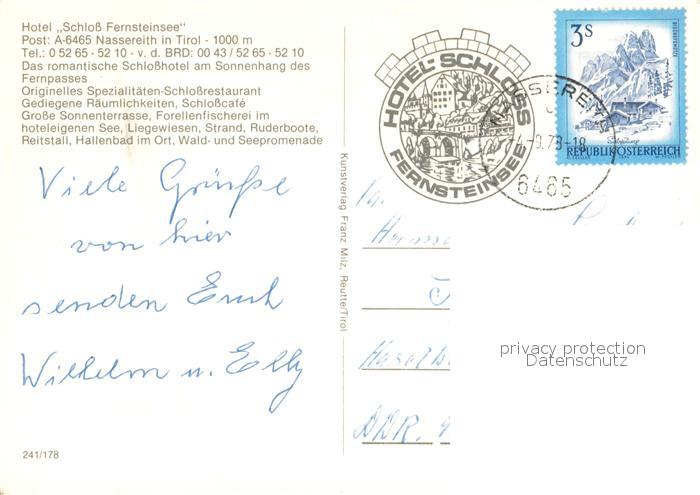 Hotel „Schloß Fernsteinsee“
Post: A-6465 Nassereith in Tirol - 1000 m
Tel.: 0 52 65 - 52 10 - v. d. BRD: 00 43 / 52 65 - 52 10
Das romantische Schloßhotel am Sonnenhang des
Fernpasses
Originelles Spezialitäten-Schloßrestaurant
Gediegene Räumlichkeiten, Schloßcafé
Große Sonnenterrasse, Forellenfischerei im
hoteleigenen See, Liegewiesen, Strand, Ruderboote,
Reitstall, Hallenbad im Ort, Wald- und Seepromenade
Viele Grüße
von hier
senden Euch
Wilhelm u. Elly
241/178
Kunstverlag Franz Milz, Reutte/Tirol
HOTEL-SCHLOSS
FERNSTEINSEE
NASSEREITH
6465
3S
REPUBLIK ÖSTERREICH
Fa.
DDR.
privacy protection
Datenschutz